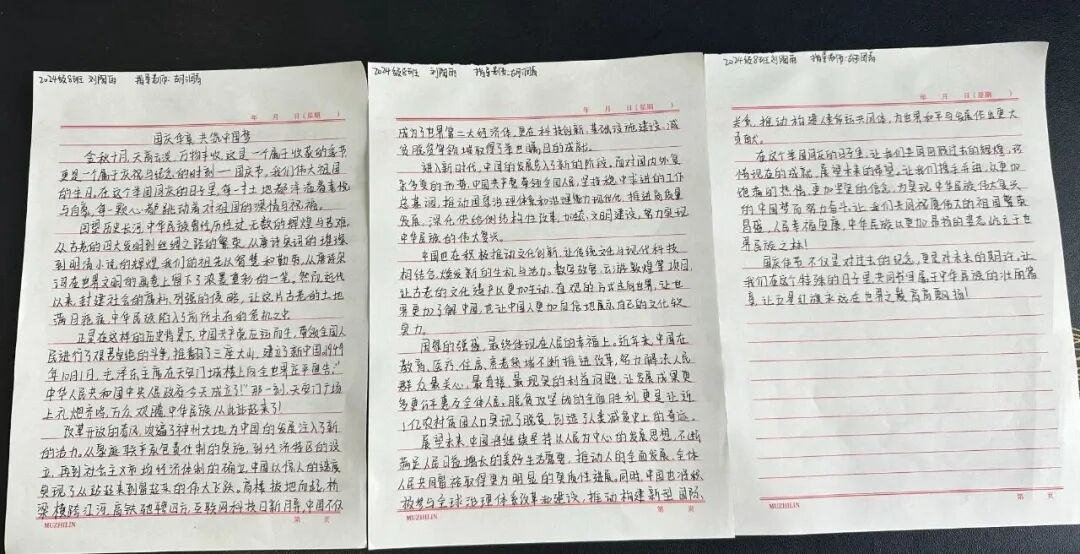 2024级8班 刘陶雨 指导老师:胡润青
年 月 日(星期 )
国庆佳章 共筑中国梦
金秋十月,天高云淡,万物丰收,这是一个属于收获的季节
更是一个属于庆祝与纪念的时刻——国庆节,我们伟大祖国
的生日。在这个举国同庆的日子里,每一寸土地都洋溢着喜悦
与自豪,每一颗心都跳动着对祖国的深情与祝福。
回望历史长河,中华民族曾经历过无数的辉煌与苦难,
从古老的四大发明到丝绸之路的繁荣,从唐诗宋词的璀璨
到明清小说的辉煌,我们的祖先以智慧和勤劳,
在世界文明的画卷上留下了浓墨重彩的一笔。然而近代
以来,封建社会的腐朽,列强的侵略,让这片古老的土地
满目疮痍,中华民族陷入了前所未有的危机之中
正是在这样的历史背景下,中国共产党应运而生,带领全国人
民进行了艰苦卓绝的斗争,推翻了三座大山,建立了新中国。1949
年10月1日,毛泽东主席在天安门城楼上向全世界庄严宣告:“
中华人民共和国中央人民政府今天成立了!”那一刻,天安门广场
上礼炮齐鸣,万众欢腾,中华民族从此站起来了!
改革开放的春风,吹遍了神州大地,为中国的发展注入了新
的活力。从家庭联产承包责任制的实施,到经济特区的设
立,再到社会主义市场经济体制的确立,中国以惊人的速度
实现了从站起来到富起来的伟大飞跃。高楼拔地而起,桥
梁横跨江河,高铁驰骋四方,互联网科技日新月异,中国不仅
MUZHILIN
第 页
2024级8班 刘陶雨 指导老师:胡润青
年 月 日(星期 )
成为了世界第二大经济体,更在科技创新,基础设施建设,减
贫脱贫等领域取得了举世瞩目的成就。
进入新时代,中国的发展步入了新的阶段。面对国内外复
杂多变的形势,中国共产党带领全国人民,坚持稳中求进的工作
总基调,推动国家治理体系和治理能力现代化,推进高质量
发展,深化供给侧结构性改革,加强文明建设,努力实现
中华民族的伟大复兴。
中国也在积极推动文化创新,让传统文化与现代科技
相结合,焕发新的生机与活力。数字故宫,云游敦煌等项目,
让古老的文化遗产以更加生动,直观的方式走向世界,让世
界更加了解中国,也让中国人更加自信地展示自己的文化软
实力。
国家的强盛,最终体现在人民的幸福上。近年来,中国在
教育,医疗,住房,养老领域不断推进改革,努力解决人民
群众最关心,最直接,最现实的利益问题,让发展成果更
多更公平惠及全体人民。脱贫攻坚战的全面胜利,更是让近
1亿农村贫困人口实现了脱贫,创造了人类减贫史上的奇迹。
展望未来,中国将继续坚持以人民为中心的发展思想,不断
满足人民日益增长的美好生活需要,推动人的全面发展,全体
人民共同富裕取得更为明显的实质性进展。同时,中国也将积
极参与全球治理体系改革和建设,推动构建新型国际
MUZHILIN
第 页
2024级8班 刘陶雨 指导老师:胡润青
年 月 日(星期 )
关系,推动构建人类命运共同体,为世界和平与发展作出更大
贡献。
在这个举国同庆的日子里,让我们共同回顾过去的辉煌,珍
惜现在的成就,展望未来的希望。让我们携手并进,以更加
饱满的热情,更加坚定的信念,为实现中华民族伟大复兴
的中国梦而努力奋斗,让我们共同祝愿伟大的祖国繁荣
昌盛,人民幸福安康,中华民族以更加昂扬的姿态屹立于世
界民族之林!
国庆佳节不仅是对过去的纪念,更是对未来的期许,让
我们在这个特殊的日子里,共同书写属于中华民族的壮丽篇
章,让五星红旗永远在世界之巅高高飘扬!